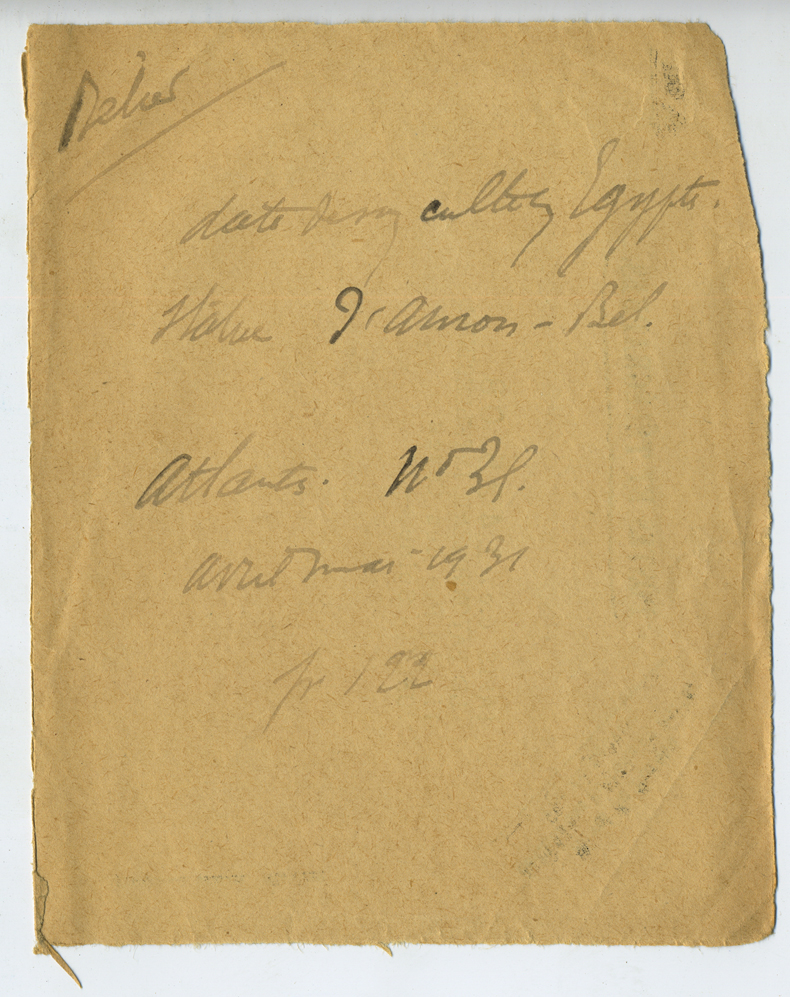 date de son culte en Egypte.
Statue d'Amon - Bel.
Atlantis. No 31.
avril mai 1931
p. 122